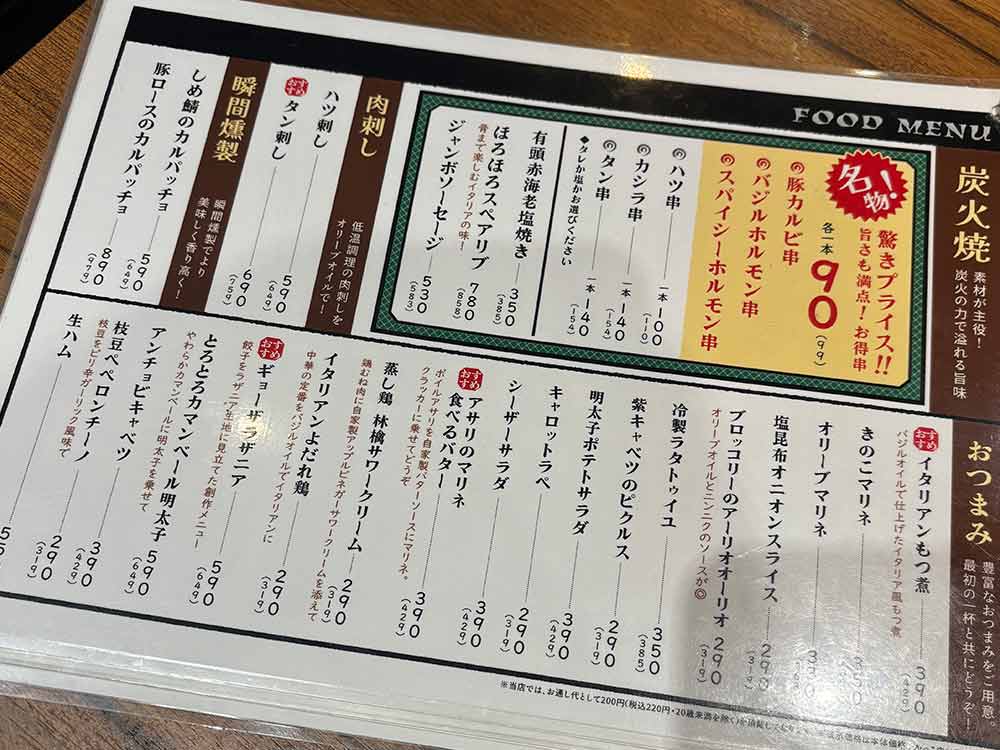 FOOD MENU
炭火焼
素材が主役！
炭火の力で溢れる旨味
名物！
驚きプライス!!
旨さも満点！お得串
各一本 90 (99)
豚カルビ串
バジルホルモン串
スパイシーホルモン串
ハツ串 一本 100 (110)
カシラ串 一本 140 (154)
タン串 一本 140 (154)
◆タレか塩かお選びください
有頭赤海老塩焼き 350 (385)
ほろほろスペアリブ 780 (858)
骨まで楽しむイタリアの味！
ジャンボソーセージ 530 (583)
肉刺し
低温調理の肉刺しを
オリーブオイルで！
ハツ刺し 590 (649)
おすすめ
タン刺し 690 (759)
瞬間燻製
瞬間燻製でより
美味しく香り高く！
しめ鯖のカルパッチョ 590 (649)
豚ロースのカルパッチョ 890 (979)
おつまみ
豊富なおつまみをご用意。
最初の一杯と共にどうぞ！
おすすめ
イタリアンもつ煮 390 (429)
バジルオイルで仕上げたイタリア風もつ煮
きのこマリネ 350
オリーブマリネ
塩昆布オニオンスライス 290 (319)
ブロッコリーのアーリオオーリオ 290 (319)
オリーブオイルとニンニクのソースが◎
冷製ラタトゥイユ 350 (385)
紫キャベツのピクルス 290 (319)
明太子ポテトサラダ 390 (429)
キャロットラペ 290 (319)
シーザーサラダ 390 (429)
おすすめ
アサリのマリネ
食べるバター 390 (429)
ボイルアサリを自家製バターソースにマリネ。
クラッカーに乗せてどうぞ
蒸し鶏 林檎サワークリーム 290 (319)
鶏むね肉に自家製アップルビネガーサワークリームを添えて
イタリアンよだれ鶏 290 (319)
中華の定番をバジルオイルでイタリアンに
おすすめ
ギョーザラザニア 590 (649)
餃子をラザニア生地に見立てた創作メニュー
とろとろカマンベール明太子 590 (649)
やわらかカマンベールに明太子を乗せて
アンチョビキャベツ 390 (429)
枝豆ペペロンチーノ 290 (319)
枝豆をピリ辛ガーリック風味で
生ハム
※当店では、お通し代として200円(税込220円・20歳未満を除く)を頂戴して